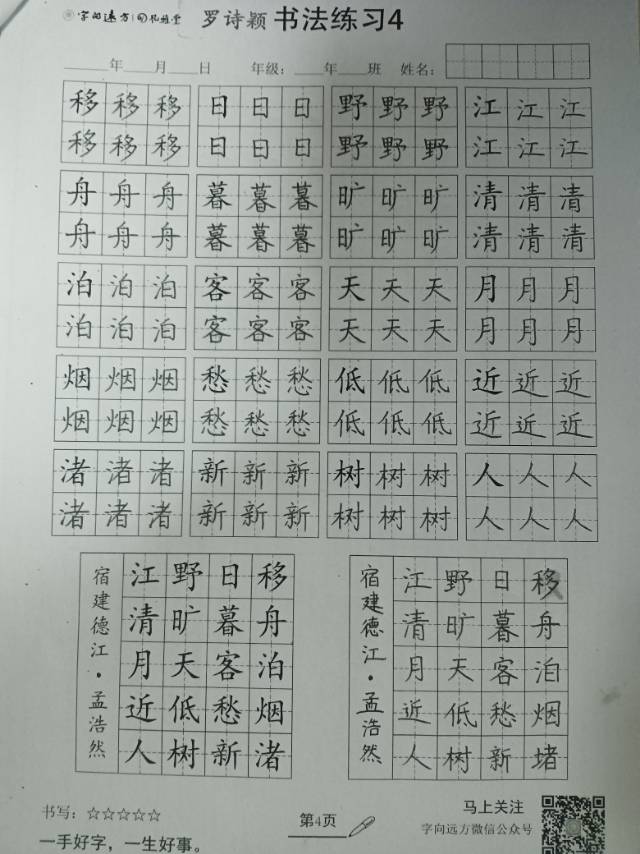 字向远方 罗诗颖 书法练习4
年 月 日 年级: 年 班 姓名:
移移移 日日日 野野野 江江江
移移移 日日日 野野野 江江江
舟舟舟 暮暮暮 旷旷旷 清清清
舟舟舟 暮暮暮 旷旷旷 清清清
泊泊泊 客客客 天天天 月月月
泊泊泊 客客客 天天天 月月月
烟烟烟 愁愁愁 低低低 近近近
烟烟烟 愁愁愁 低低低 近近近
渚渚渚 新新新 树树树 人人人
渚渚渚 新新新 树树树 人人人
移舟泊烟渚
日暮客愁新
野旷天低树
江清月近人
宿建德江·孟浩然
移舟泊烟堵
日暮客愁新
野旷天低树
江清月近人
宿建德江·孟浩然
书写: ☆☆☆☆☆
一手好字，一生好事。
第4页
马上关注
字向远方微信公众号